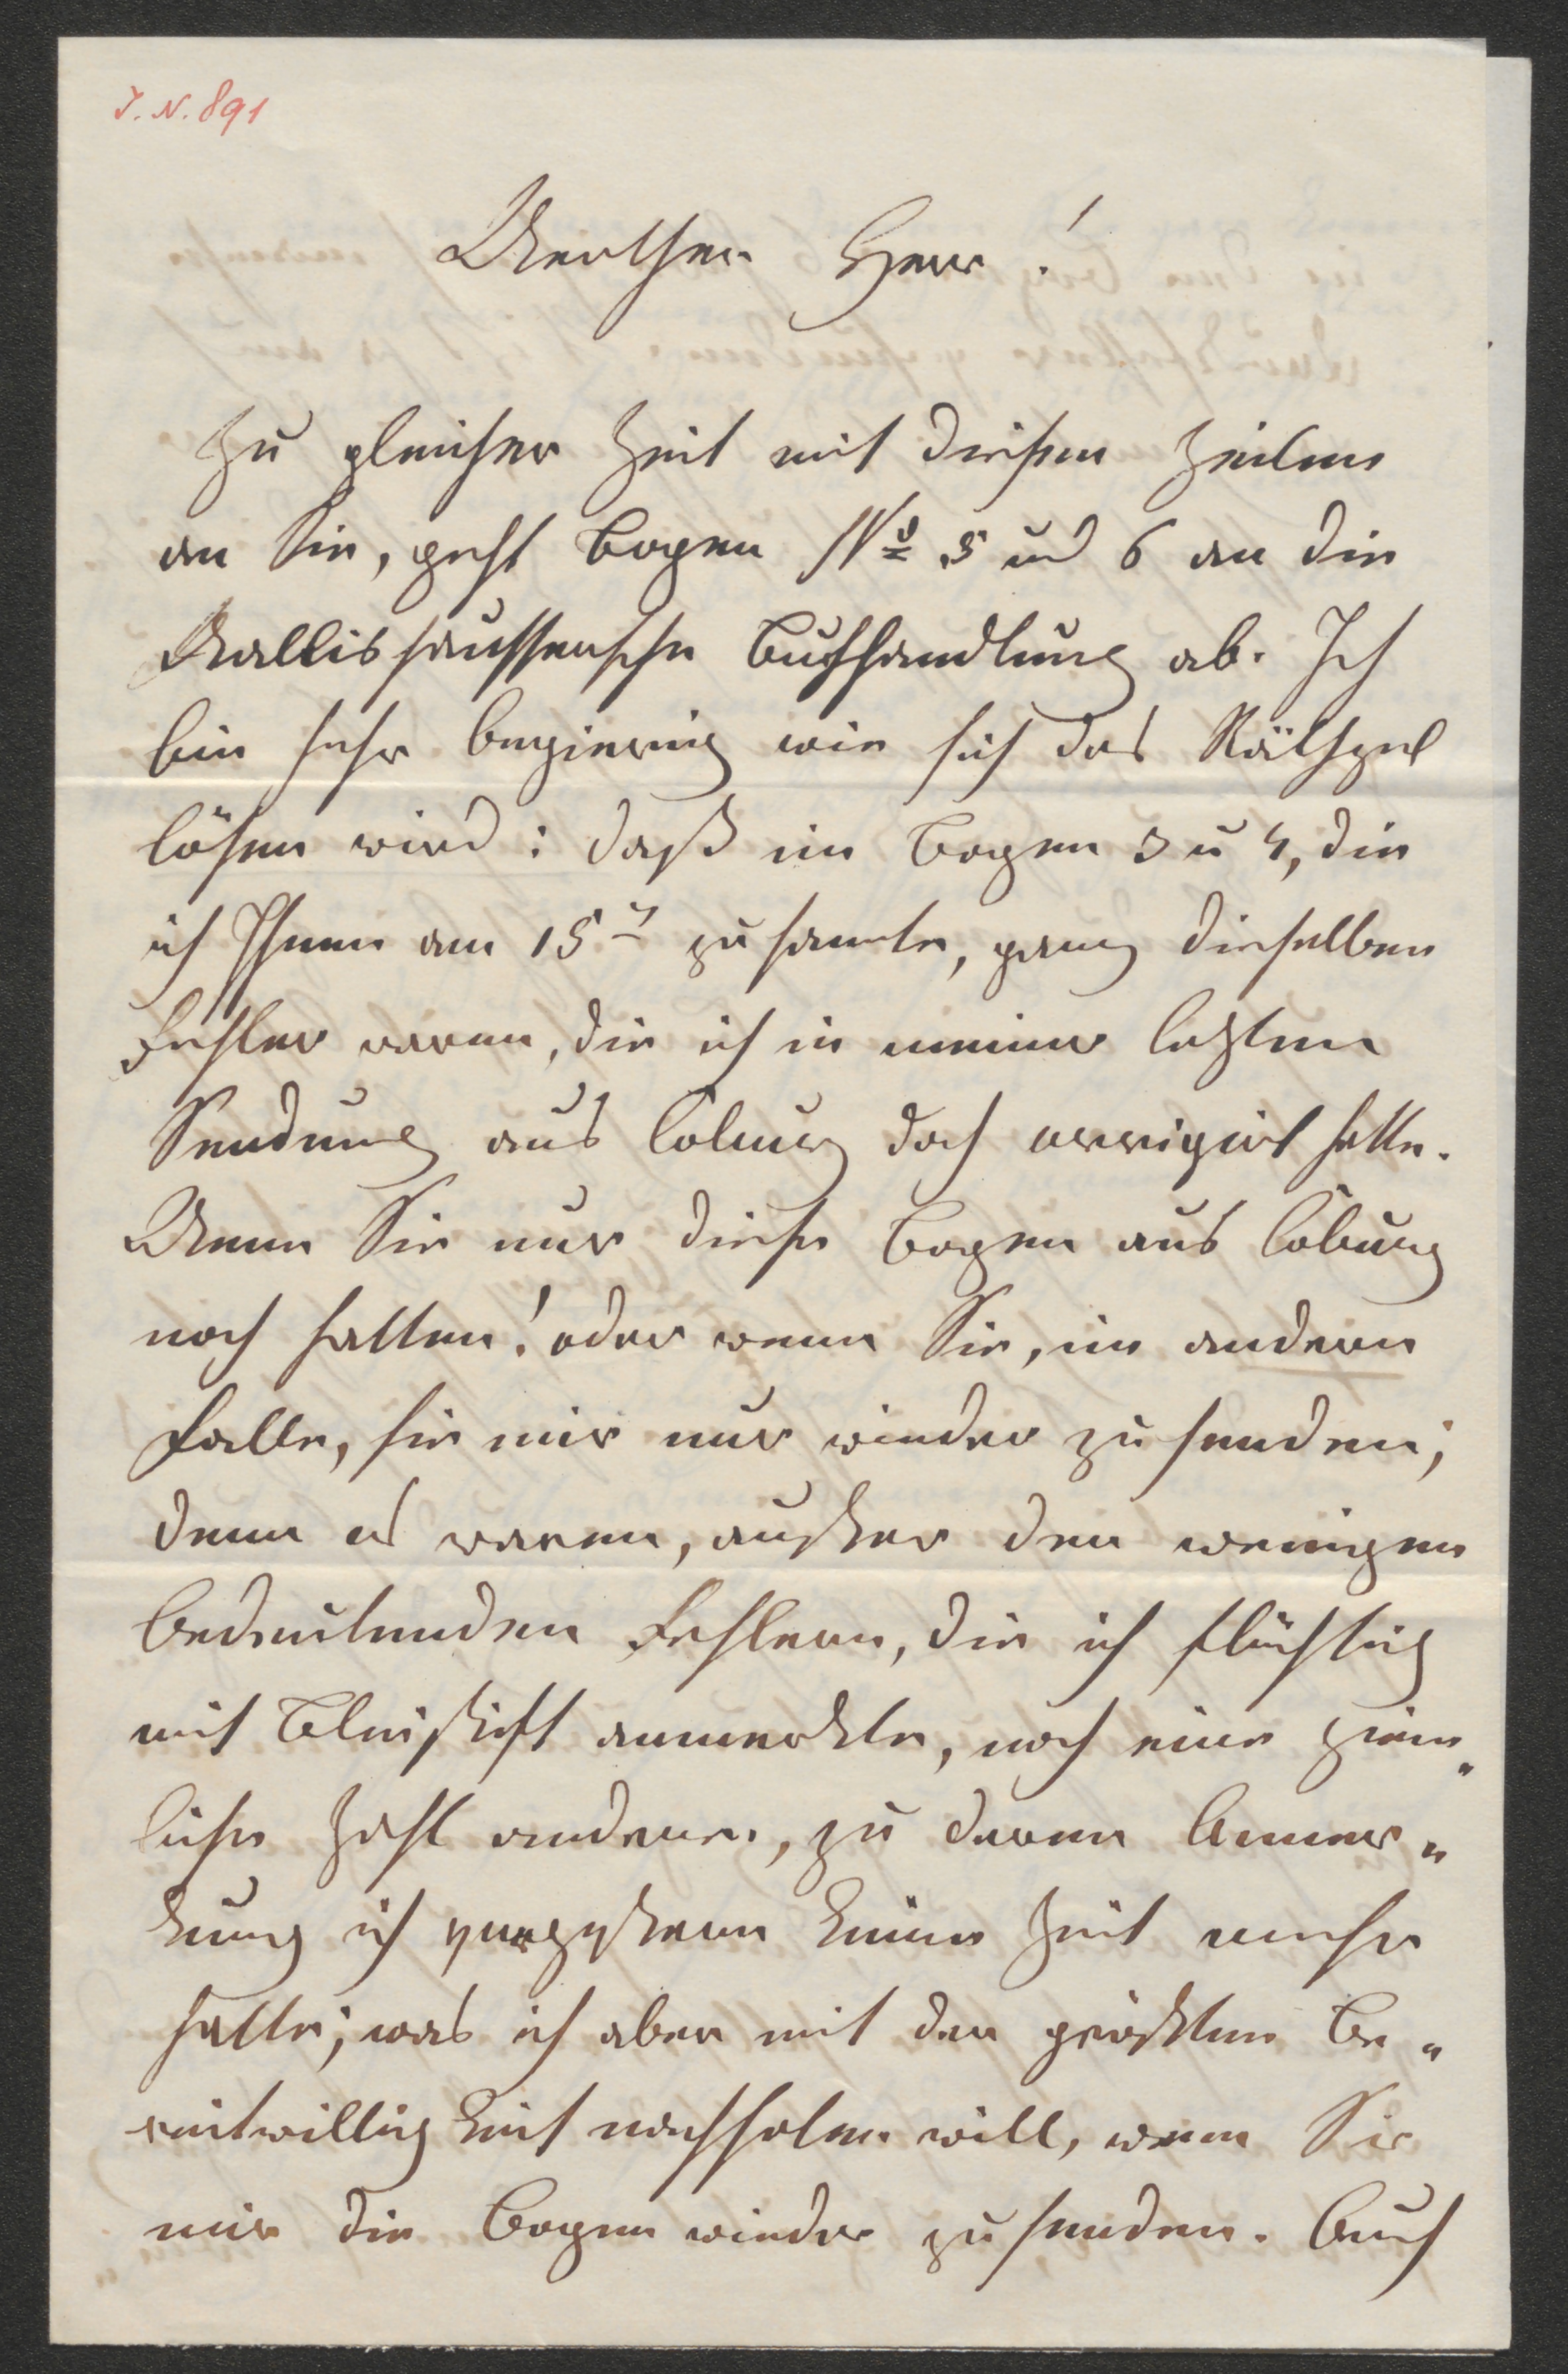 J. N. 891
Werther Herr!
Zu gleicher Zeit mit diesen Zeilen
an Sie, geht Bogen No 5 und 6 an die
Wallishausserische Buchhandlung ab. Ich
bin sehr begierig wie sich das Räthsel
lösen wird: daß in Bogen 3 u 4, die
ich Ihnen am 15t zusandte, ganz dieselben
Fehler waren, die ich in meiner letzten
Sendung aus Coburg doch corrigirt hatte.
Wenn Sie nur diese Bogen aus Coburg
noch hätten! oder wenn Sie, im andern
Falle, sie mir nur wieder zusenden;
denn es waren, außer den wenigen
bedeutenden Fehlern, die ich flüchtig
mit Bleistift anmerkte, noch eine ziem„
liche Zahl anderer, zu deren Anmer„
kung ich vorgestern keine Zeit mehr
hatte; was ich aber mit der größten Be„
reitwilligkeit nachholen will, wenn Sie
mir die Bogen wieder zusenden. Auch